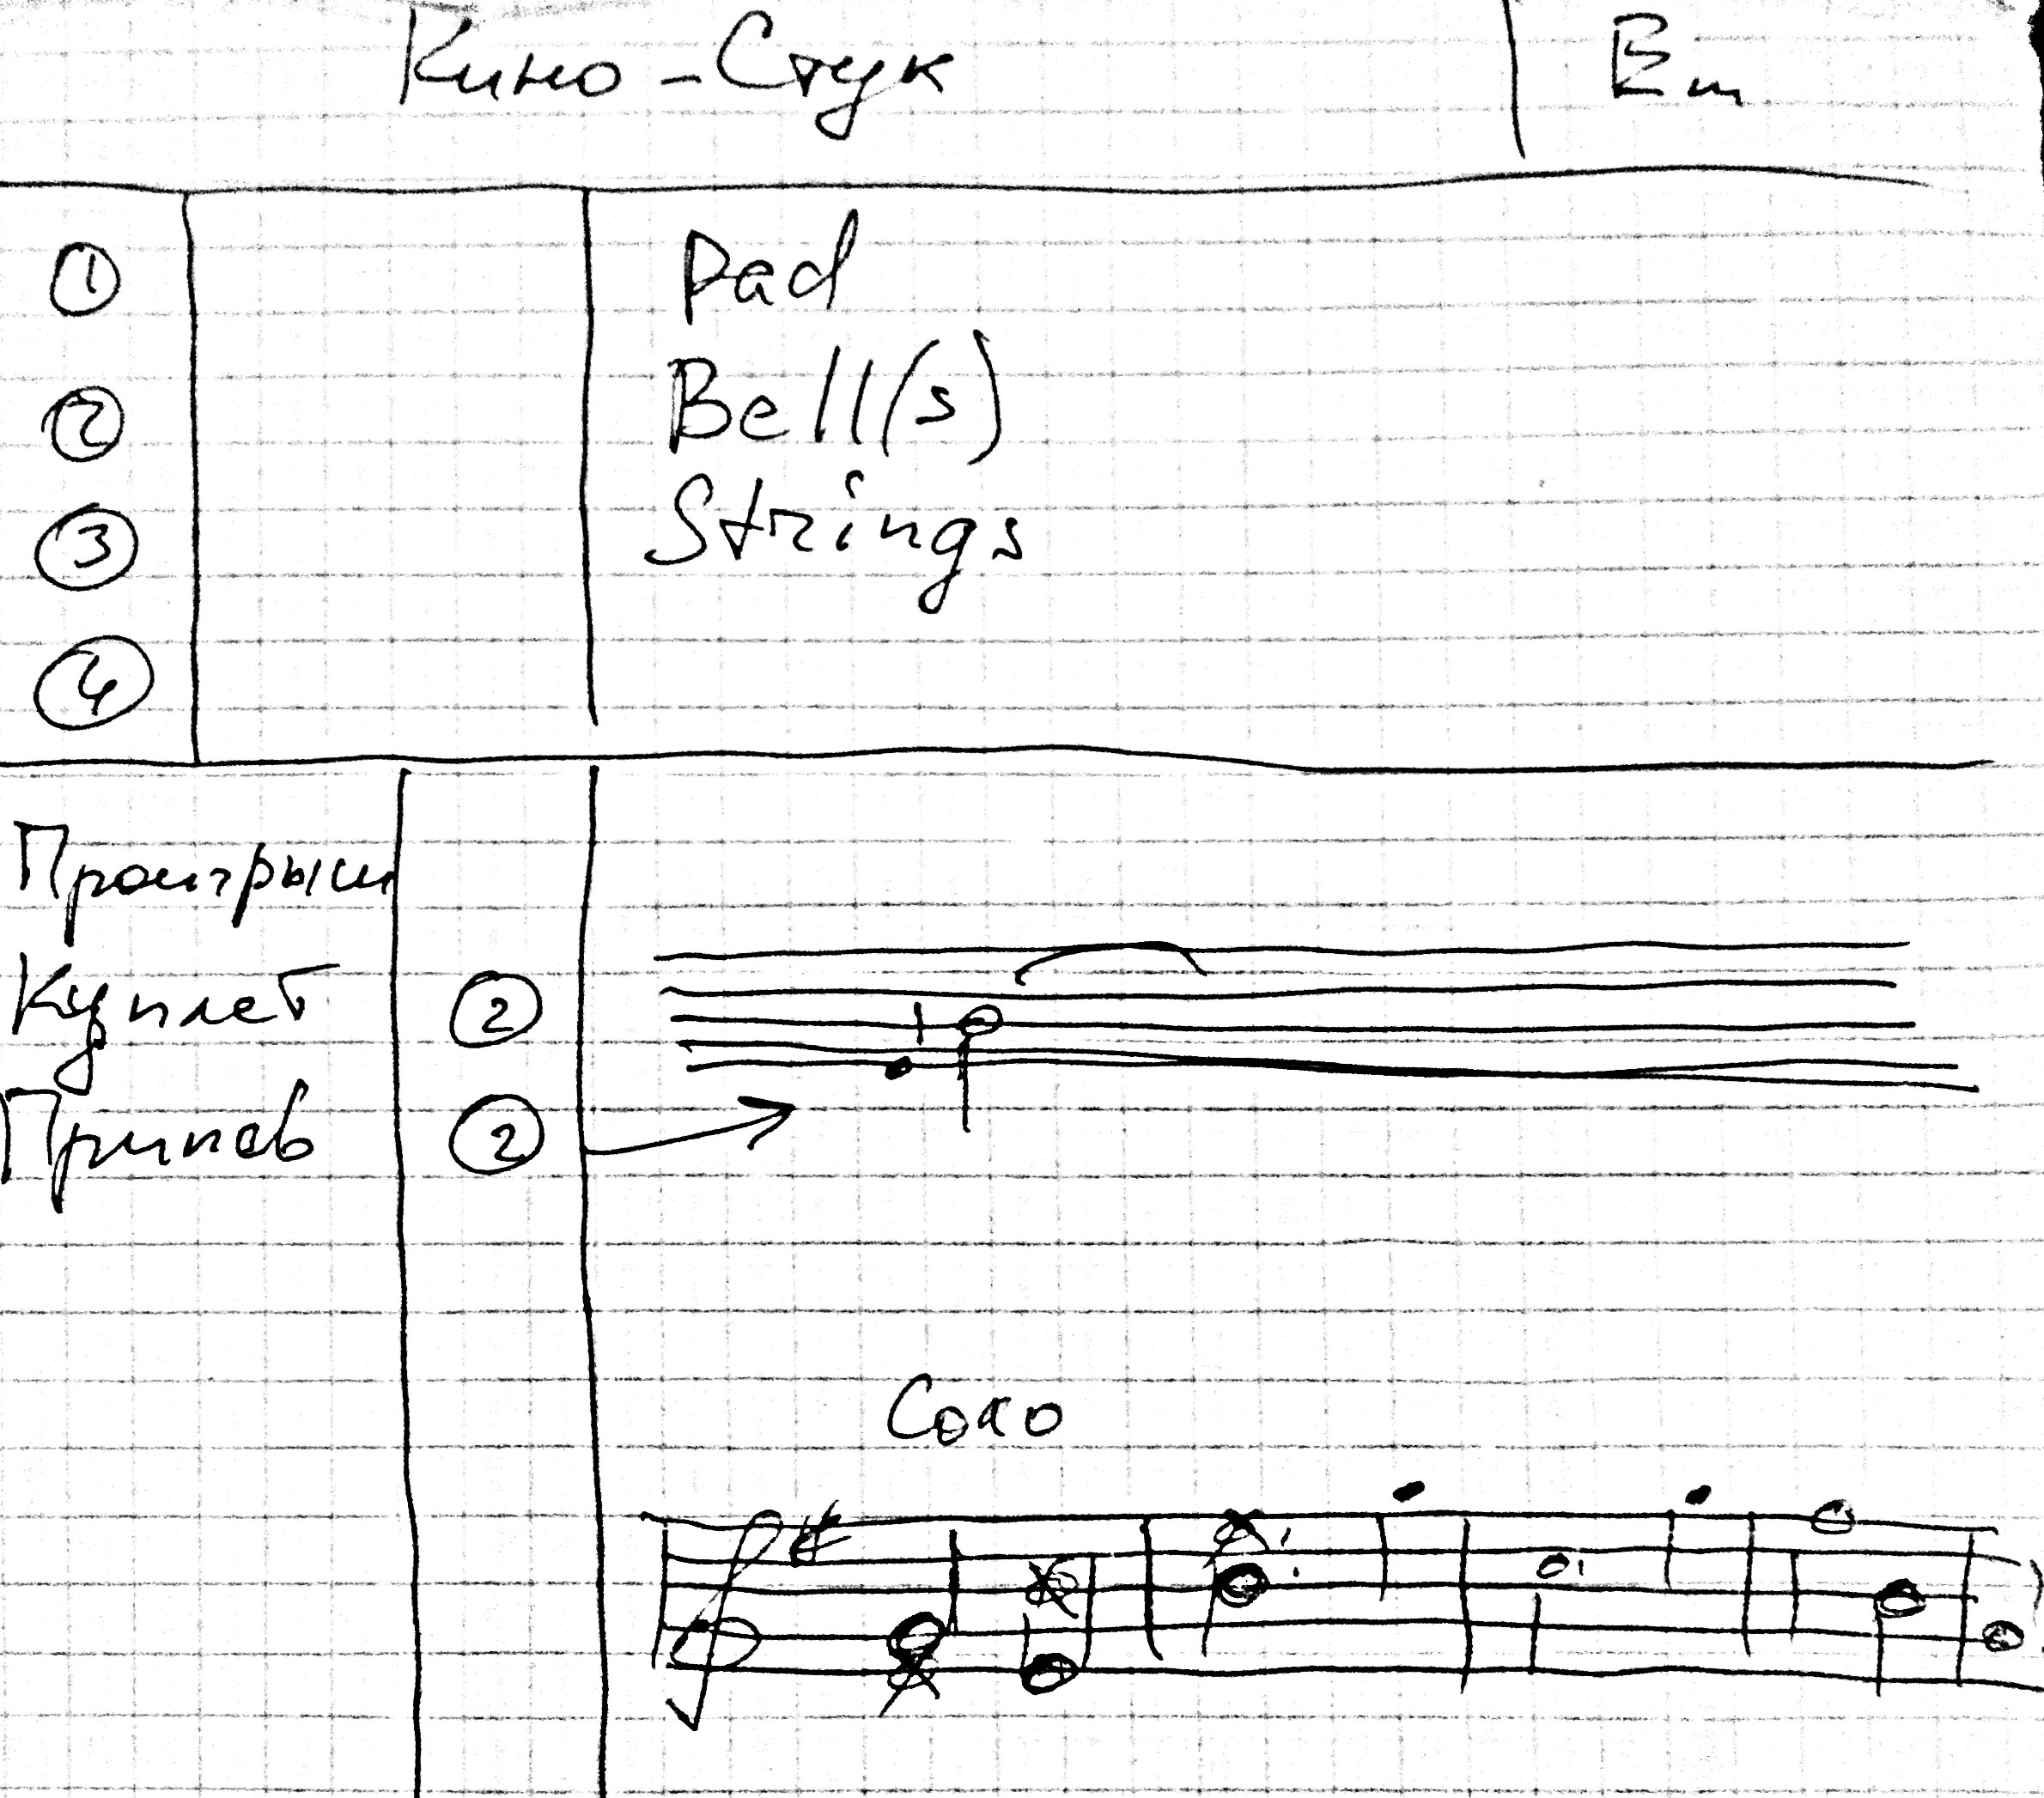 Кино - Стук Em
① Pad
② Bell(s)
③ Strings
④
Проигрыш
Куплет ②
Припев ②
Соло